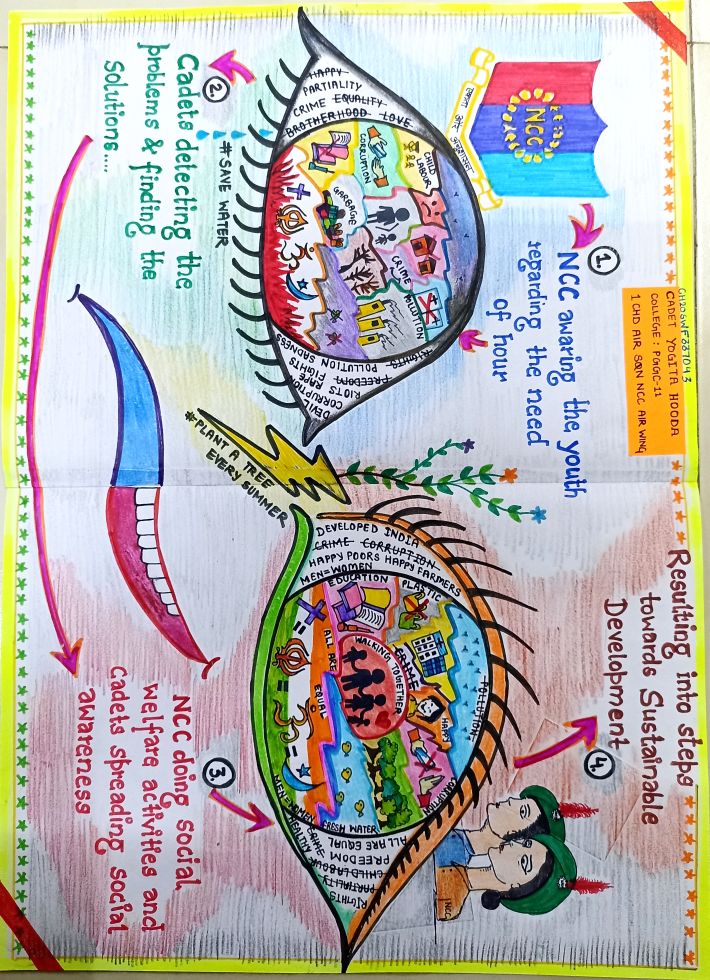 CH20SWF337043
CADET YOGITA HOODA
COLLEGE : PGGC-11
1 CHD AIR SQN NCC AIR WING
NCC
एकता और अनुशासन
1.
NCC awaring the youth
regarding the need
of hour
Resulting into steps
towards Sustainable
Development
4.
NCC
HAPPY
PARTIALITY
CRIME EQUALITY
BROTHERHOOD LOVE
CHILD
LABOUR
CORRUPTION
GARBAGE
CRIME
POLLUTION
RIGHTS
POLLUTION SADNESS
FREEDOM FIGHTS
RIOTS RAPE
CORRUPTION
DEVIL
DEVELOPED INDIA
CRIME CORRUPTION
HAPPY POORS HAPPY FARMERS
MEN=WOMEN
EDUCATION
PLASTIC
POLLUTION
CRIME
WALKING TOGETHER
HAPPY
CORRUPTION
ALL ARE
EQUAL
FRESH WATER
MEN=WOMEN
ALL ARE EQUAL
CRIME FREEDOM
HEALTHY CHILD LABOUR
PARTIALITY
RIGHTS
2.
Cadets detecting the
problems & finding the
solutions....
#SAVE WATER
#PLANT A TREE
EVERY SUMMER
3.
NCC doing social
welfare activities and
Cadets spreading social
awareness